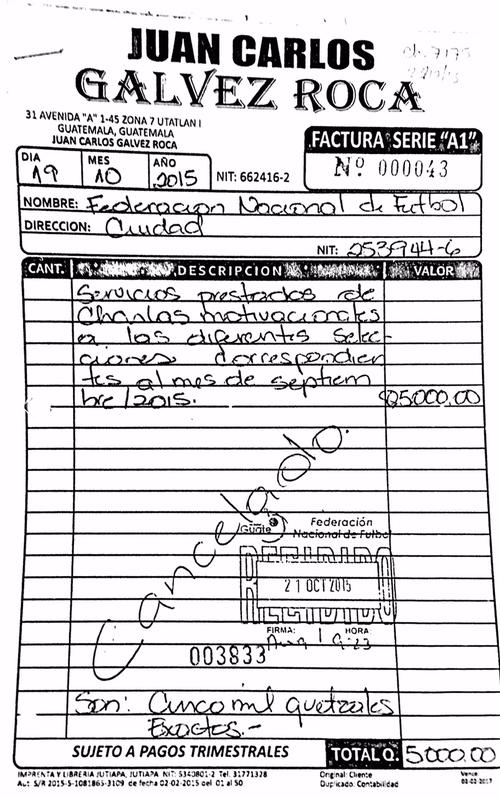 JUAN CARLOS
GALVEZ ROCA
31 AVENIDA "A" 1-45 ZONA 7 UTATLAN I
GUATEMALA, GUATEMALA
JUAN CARLOS GALVEZ ROCA
FACTURA SERIE "A1"
Nº 000043
DIA MES AÑO
19 10 2015
NIT: 662416-2
NOMBRE: Federacion Nacional de Futbol
DIRECCION: Ciudad
NIT: 253944-6
CANT. DESCRIPCION VALOR
Servicios prestados de
Charlas motivacionales
en las diferentes Selec-
ciones correspondien
tes al mes de septiem
bre/2015. Q5000.00
Cancelado.
Guate
Federación
Nacional de Futbol
RECIBIDO
21 OCT 2015
FIRMA: HORA
9:23
003833
Son: Cinco mil quetzales
Exactos.-
SUJETO A PAGOS TRIMESTRALES TOTAL Q. 5000.00
IMPRENTA Y LIBRERIA JUTIAPA, JUTIAPA NIT: 5340801-2 Tel. 31771328
Aut: S/R 2015-5-1081865-3109 de fecha 02-02-2015 del 01 al 50
Original: Cliente
Duplicado: Contabilidad
Vence
02-02-2017